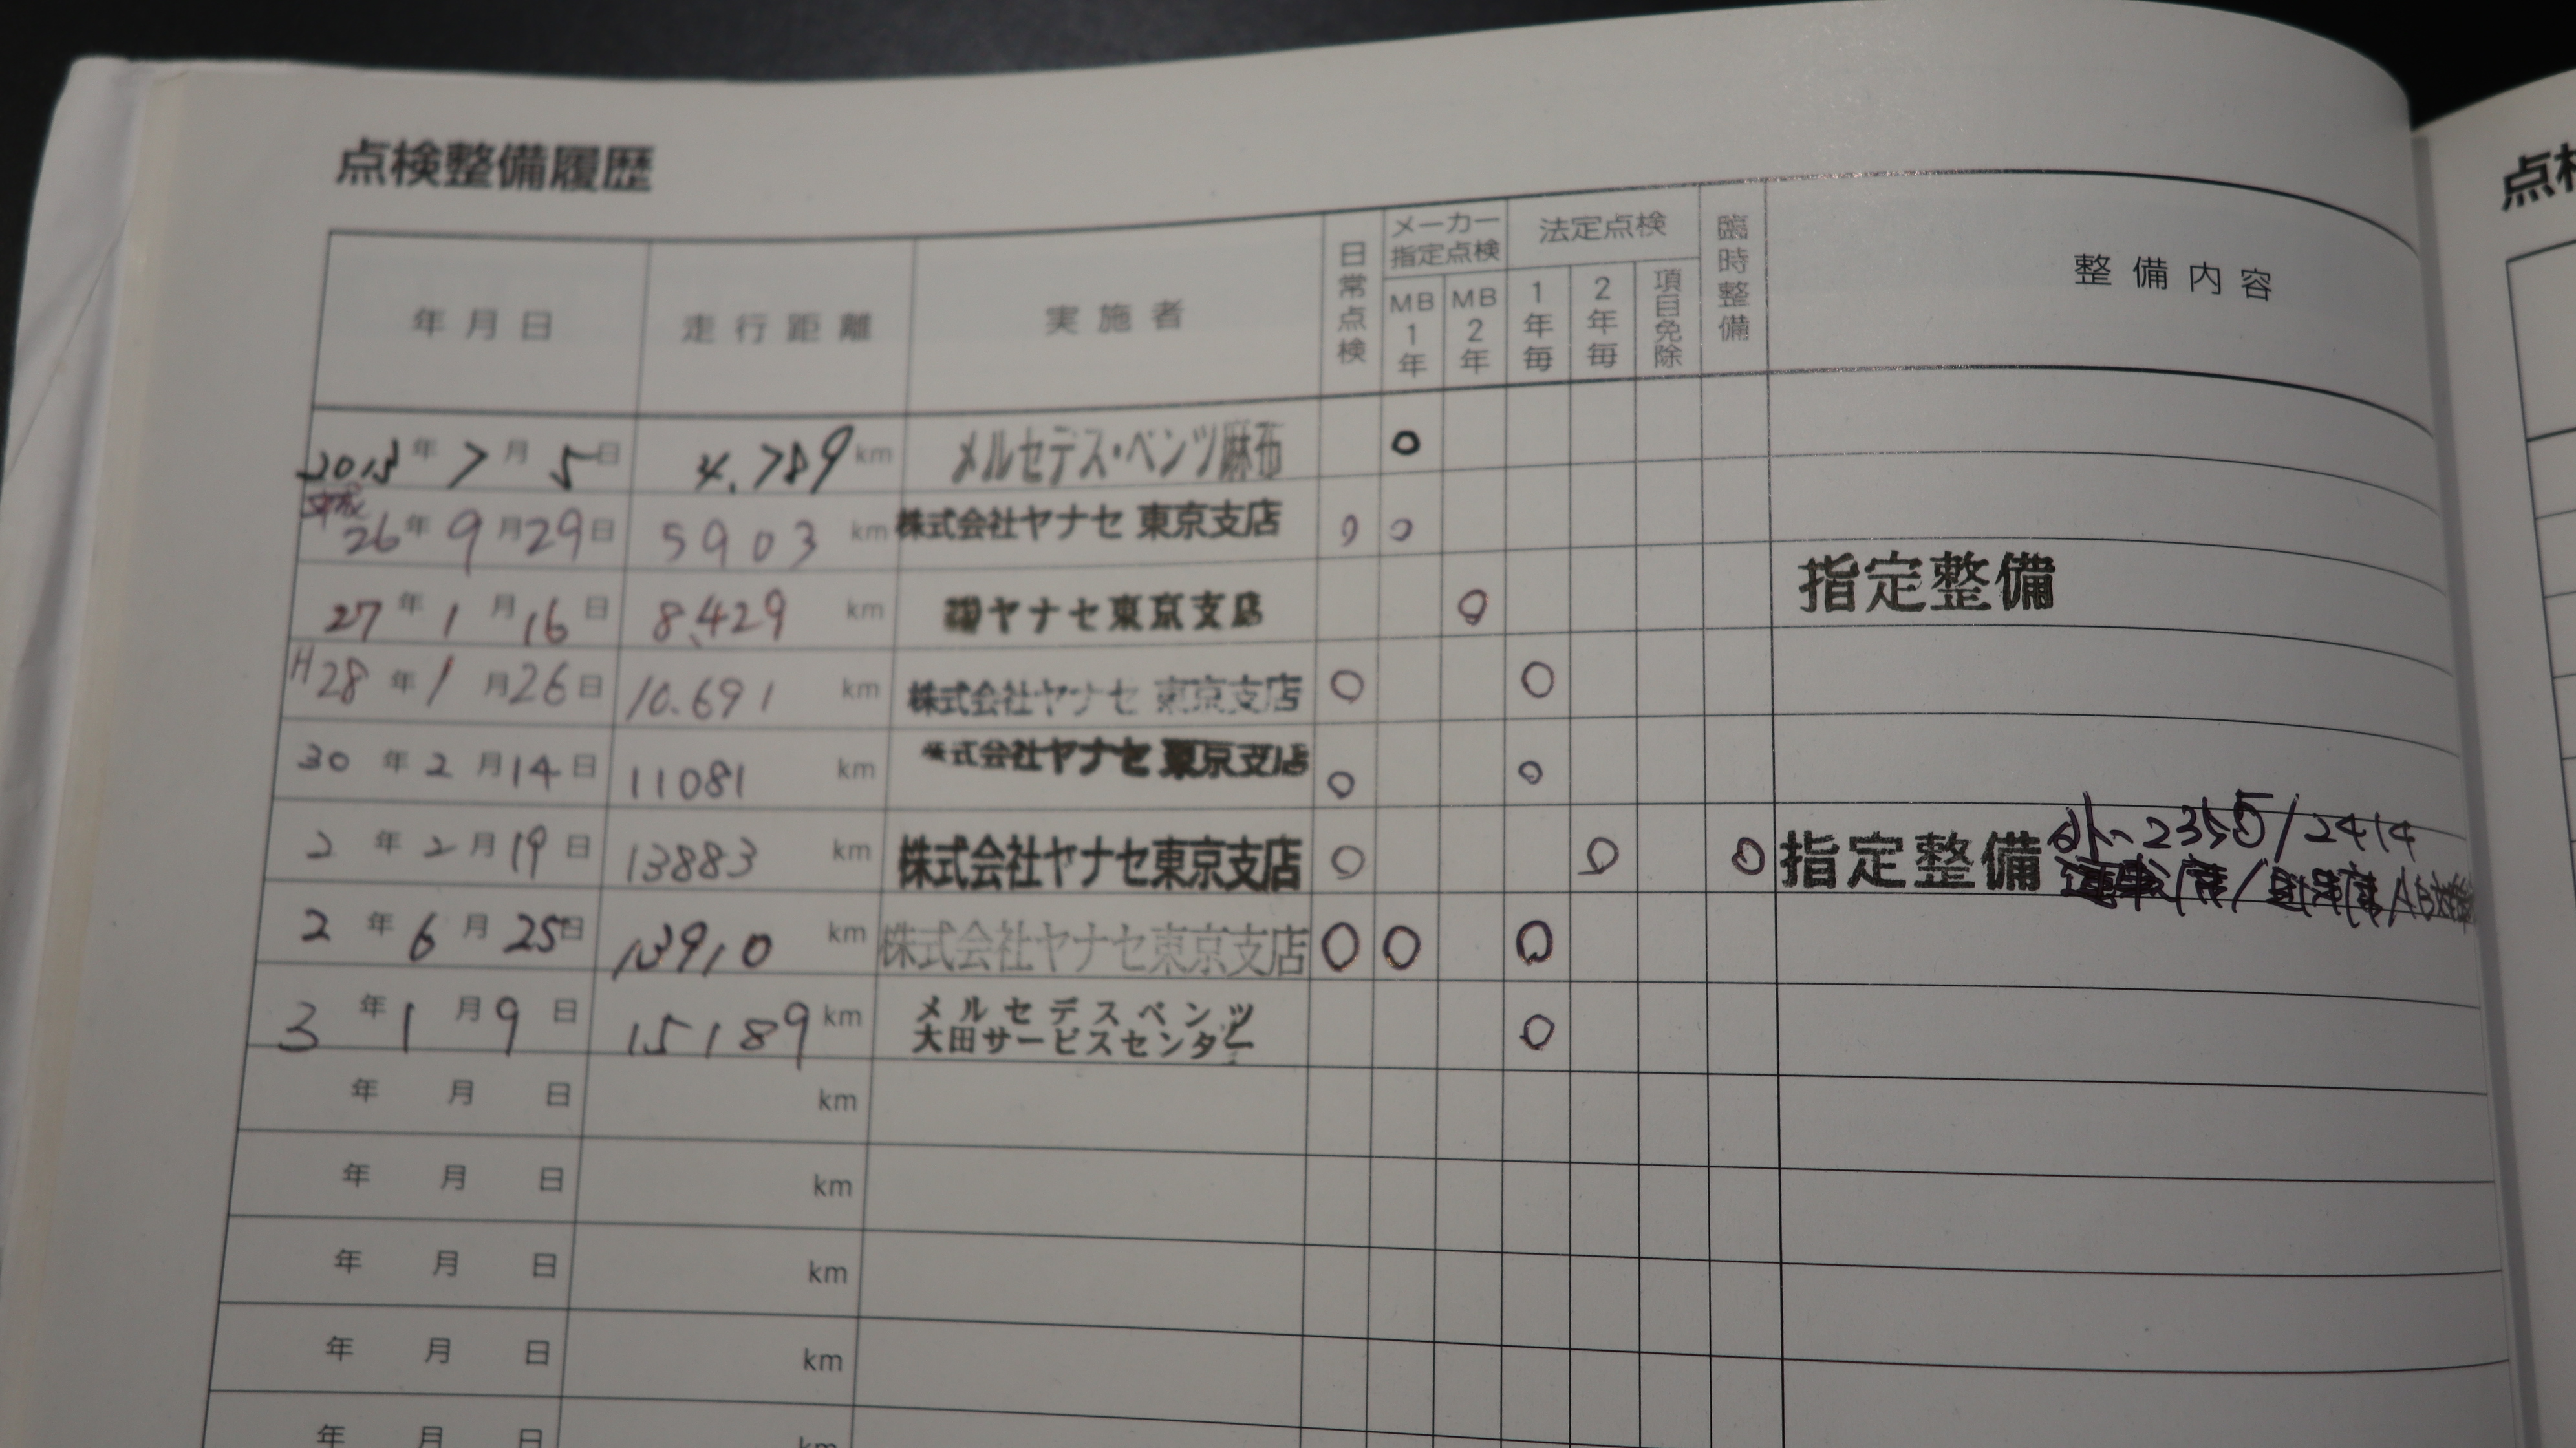 点検整備履歴
年月日 走行距離 実施者 日常点検 メーカー指定点検 MB1年 MB2年 法定点検 1年毎 2年毎 項目免除 臨時整備 整備内容
2013年7月5日 4,789km メルセデス・ベンツ麻布 ○
平成26年9月29日 5903km 株式会社ヤナセ 東京支店 ○ ○
27年1月16日 8,429km ㈱ヤナセ東京支店 ○ 指定整備
H28年1月26日 10.691km 株式会社ヤナセ 東京支店 ○ ○
30年2月14日 11081km 株式会社ヤナセ 東京支店 ○ ○
2年2月19日 13883km 株式会社ヤナセ東京支店 ○ ○ ○ 指定整備
2年6月25日 13910km 株式会社ヤナセ東京支店 ○ ○ ○
3年1月9日 15189km メルセデスベンツ
大田サービスセンター ○
年月日 km
年月日 km
年月日 km
年月日 km
年月日 km